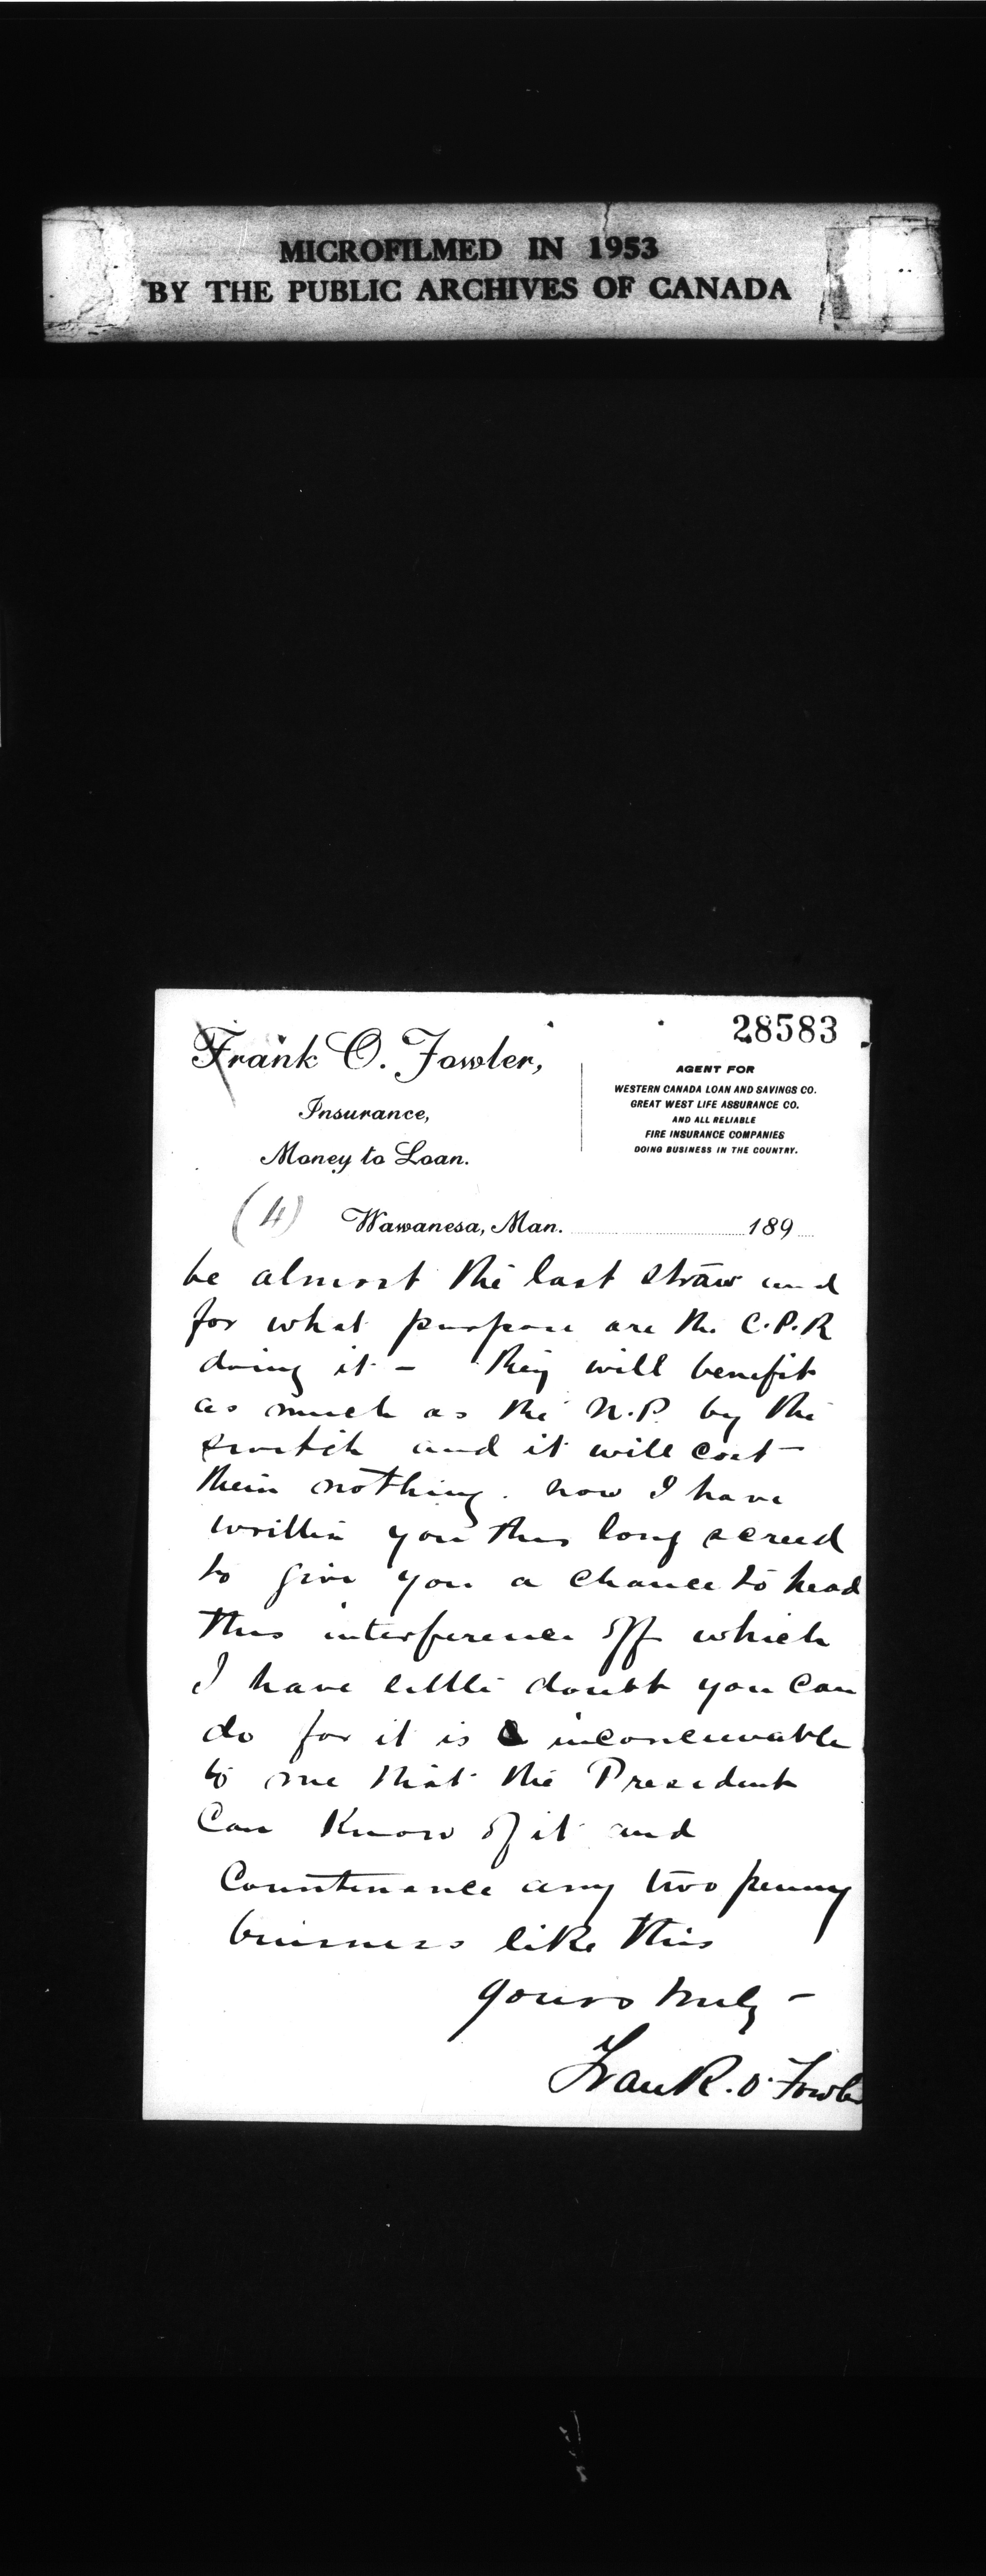 MICROFILMED IN 1953
BY THE PUBLIC ARCHIVES OF CANADA
28583
Frank O. Fowler,
Insurance,
Money to Loan.
AGENT FOR
WESTERN CANADA LOAN AND SAVINGS CO.
GREAT WEST LIFE ASSURANCE CO.
AND ALL RELIABLE
FIRE INSURANCE COMPANIES
DOING BUSINESS IN THE COUNTRY.
(4)
Wawanesa, Man. 189
be almost the last straw and
for what purpose are the C.P.R
doing it – they will benefit
as much as the N.P. by the
switch and it will cost
them nothing. now I have
written you this long screed
to give you a chance to head
this interference off which
I have little doubt you can
do for it is inconceivable
to me that the President
Can Know of it and
Countenance any two penny
business like this
yours truly –
Frank. O. Fowler